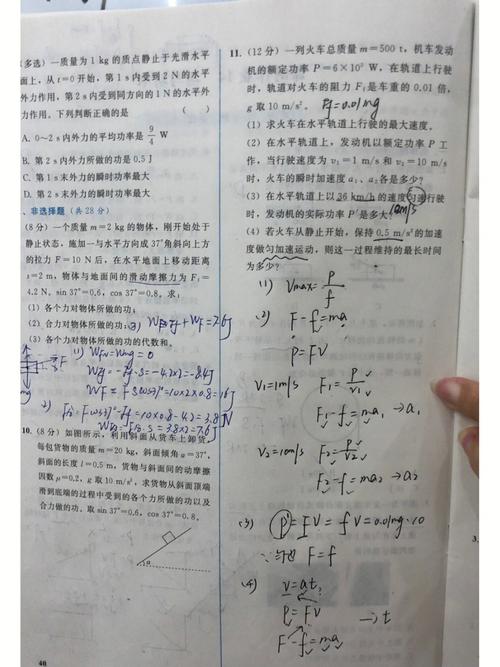 (多选) 一质量为 1 kg 的质点静止于光滑水平
面上,从 t=0 开始,第 1 s 内受到 2 N 的水平
外力作用,第 2 s 内受到同方向的 1 N 的水平外
力作用。下列判断正确的是 ( )
A. 0～2 s 内外力的平均功率是 9/4 W
B. 第 2 s 内外力所做的功是 0.5 J
C. 第 1 s 末外力的瞬时功率最大
D. 第 2 s 末外力的瞬时功率最大
、非选择题 (共 28 分)
(8 分) 一个质量 m=2 kg 的物体,刚开始处于
静止状态,施加一与水平方向成 37°角斜向上方
的拉力 F=10 N 后,在水平地面上移动距离
s=2 m,物体与地面间的滑动摩擦力为 F₁=
4.2 N, sin 37°=0.6, cos 37°=0.8。求:
(1) 各个力对物体所做的功;
(2) 合力对物体所做的功;
3) W总=Wf+WF=7.6J
(3) 各个力对物体所做功的代数和。
F
mg
1) WFN=Wmg=0
Wf=-f·s=-4.2×2=-8.4J
WF=F·scos37°=10×2×0.8=16J
2) F合=Fcos37°-f=10×0.8-4.2=3.8N
W合=F合·s=3.8×2=7.6J
10. (8 分) 如图所示,利用斜面从货车上卸货,
每包货物的质量 m=20 kg,斜面倾角 α=37°,
斜面的长度 l=0.5 m,货物与斜面间的动摩擦
因数 μ=0.2, g 取 10 m/s²,求货物从斜面顶端
滑到底端的过程中受到的各个力所做的功以及
合力做的功。取 sin 37°=0.6, cos 37°=0.8。
α
40
11. (12 分) 一列火车总质量 m=500 t,机车发动
机的额定功率 P=6×10⁵ W,在轨道上行驶
时,轨道对火车的阻力 F₁是车重的 0.01 倍,
g 取 10 m/s²。 Ff=0.01mg
(1) 求火车在水平轨道上行驶的最大速度。
(2) 在水平轨道上,发动机以额定功率 P 工
作,当行驶速度为 v₁=1 m/s 和 v₂=10 m/s
时,火车的瞬时加速度 a₁、a₂各是多少?
(3) 在水平轨道上以 36 km/h 的速度匀速行驶
时,发动机的实际功率 P′是多大?
10m/s
(4) 若火车从静止开始,保持 0.5 m/s² 的加速
度做匀加速运动,则这一过程维持的最长时间
为多少?
(1) Vmax=P/f
(2) F-f=ma
P=FV
V₁=1m/s F₁=P/V₁
F₁-f=ma₁ →a₁
V₂=10m/s F₂=P/V₂
F₂-f=ma₂→a₂
(3) P′=FV=fV=0.01mg·10
∵匀速 F=f
(4) v=at,
P=FV →t
F-f=ma
3.